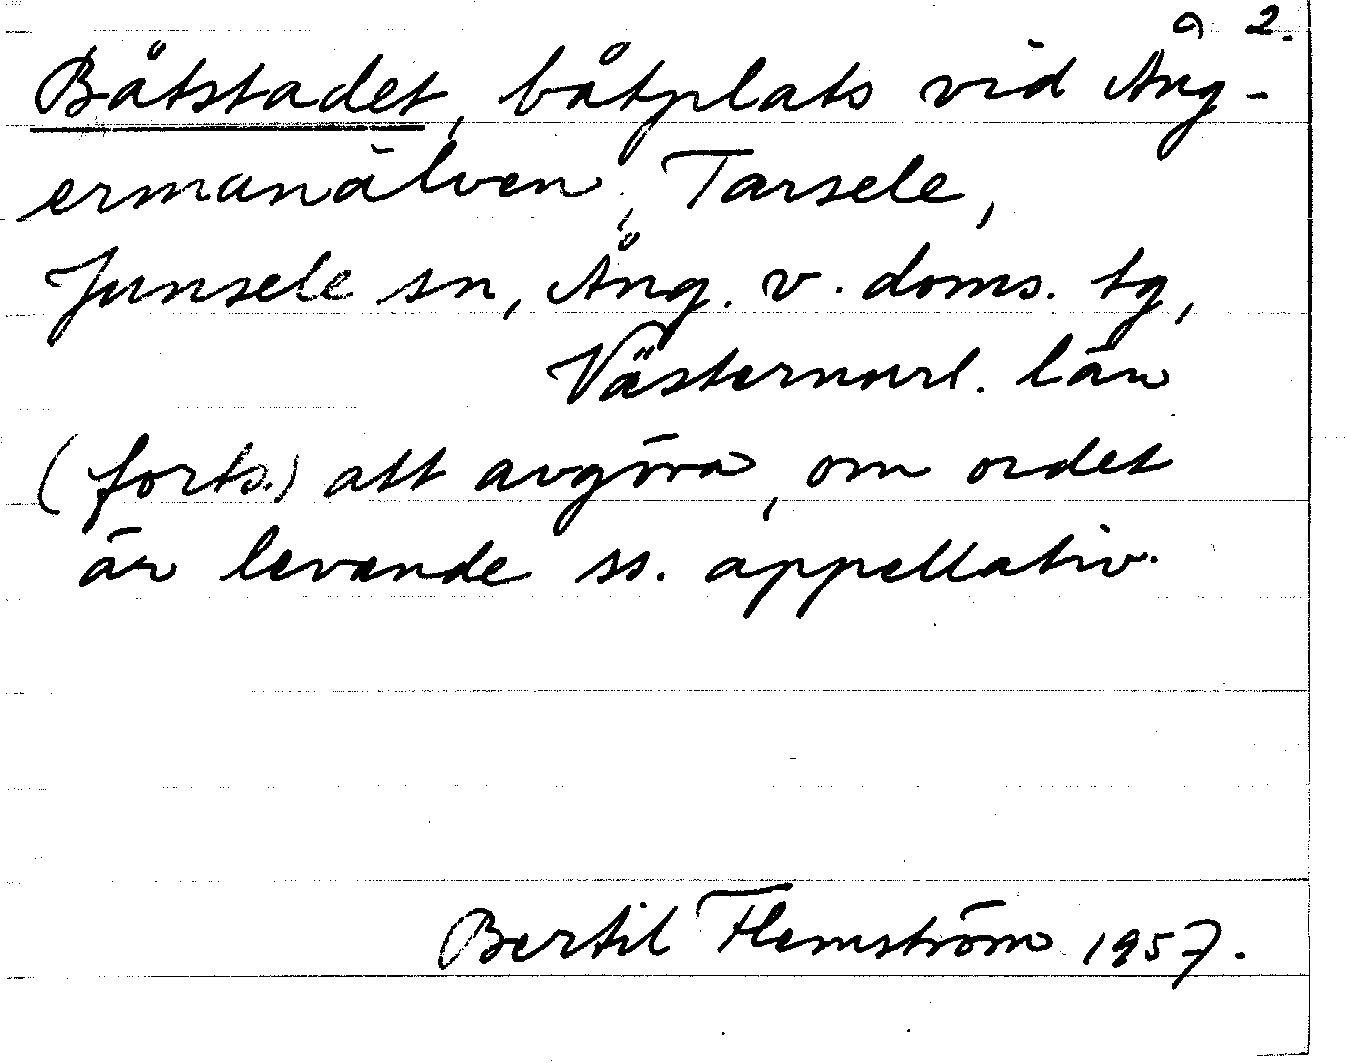 2.
Båtstadet, båtplats vid Ång-
ermanälven, Tarsele,
Junsele sn, Ång. v. doms. tg,
Västernorrl. län
(forts.) att avgöra, om ordet
är levande ss. appellativ.
Bertil Flemström 1957.